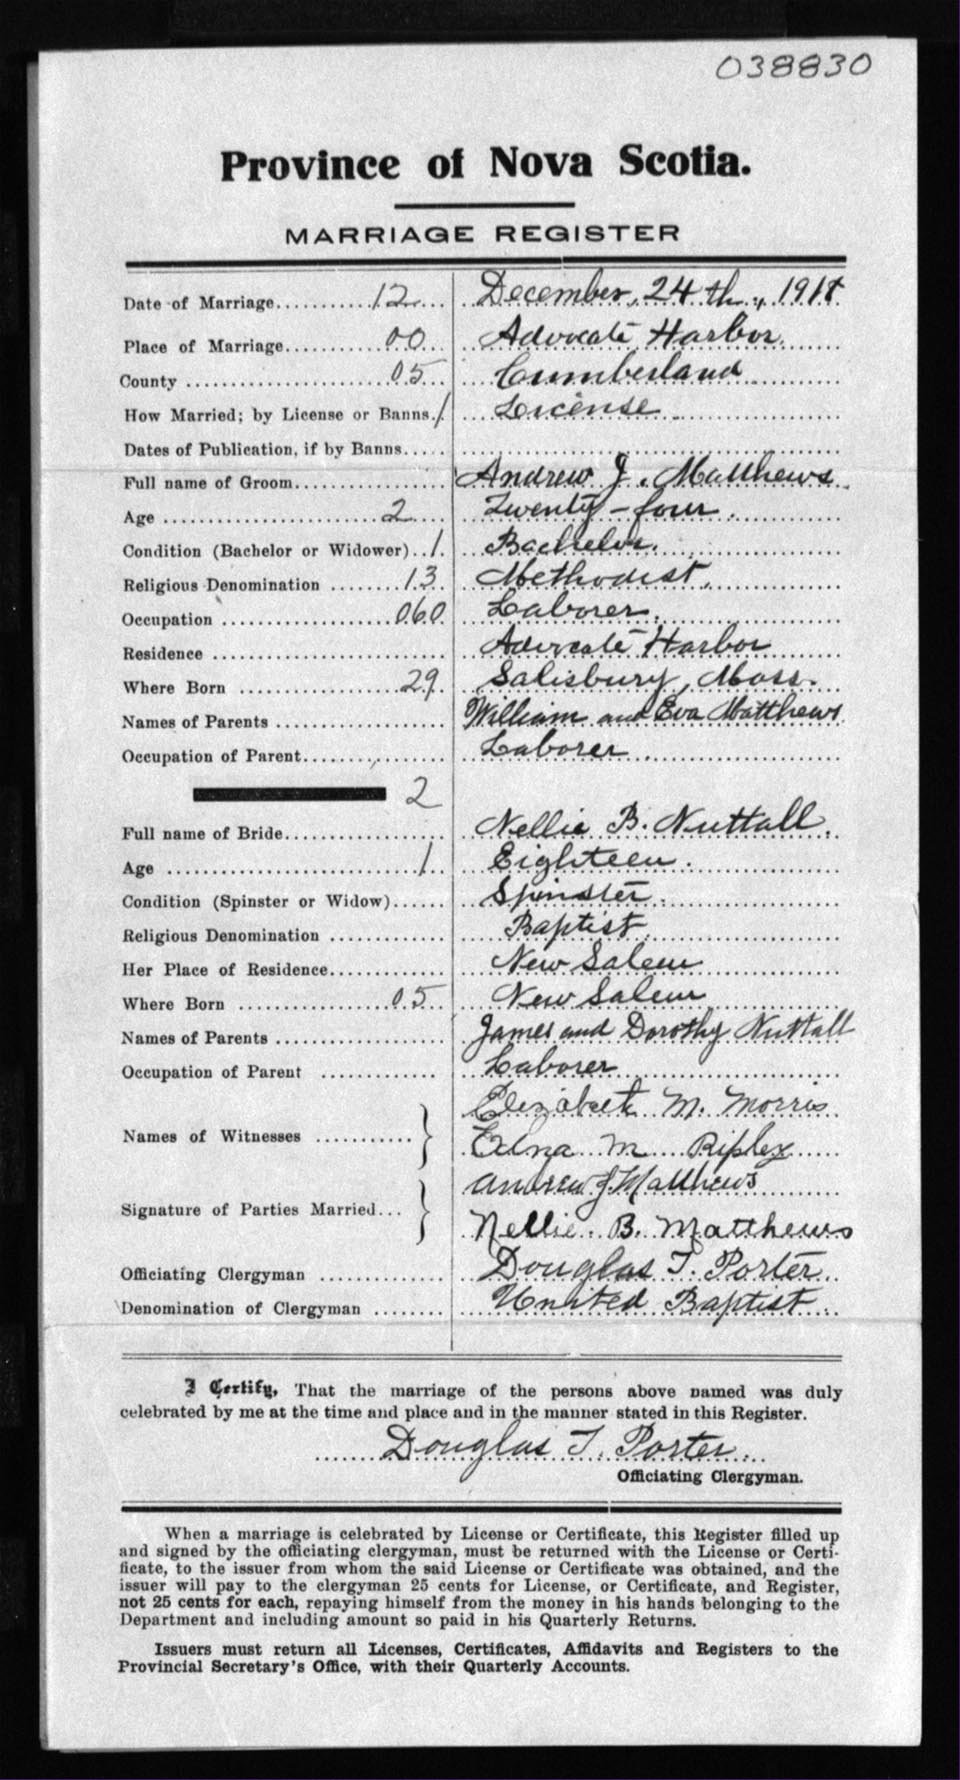 038830
Province of Nova Scotia.
MARRIAGE REGISTER
Date of Marriage..........12.... December, 24 th., 
Place of Marriage...........00... Advocate Harbor
County ......................05... Cumberland
How Married; by License or Banns./ License
Dates of Publication, if by Banns.....
Full name of Groom................. Andrew J. Matthews
Age ........................2.... Twenty-four.
Condition (Bachelor or Widower)..1. Bachelor.
Religious Denomination .......13. Methodist.
Occupation ...................060 Laborer.
Residence .......................... Advocate Harbor
Where Born .................29. Salisbury, Mass.
Names of Parents ................... William and Eva Matthews
Occupation of Parent................ Laborer
2
Full name of Bride.................. Nellie B. Nuttall.
Age ............................1. Eighteen.
Condition (Spinster or Widow)...... Spinster.
Religious Denomination ............. Baptist
Her Place of Residence............. New Salem
Where Born .................05.. New Salem
Names of Parents ................... James and Dorothy Nuttall
Occupation of Parent ............. Laborer
Elizabeth M. Morris
Names of Witnesses ............ } Edna M. Ripley
Andrew J. Matthews
Signature of Parties Married... } Nellie. B. Matthews
Officiating Clergyman .............. Douglas T. Porter
Denomination of Clergyman ........ United Baptist
I Certify, That the marriage of the persons above named was duly
celebrated by me at the time and place and in the manner stated in this Register.
Douglas T. Porter
Officiating Clergyman.
When a marriage is celebrated by License or Certificate, this Register filled up
and signed by the officiating clergyman, must be returned with the License or Certi-
ficate, to the issuer from whom the said License or Certificate was obtained, and the
issuer will pay to the clergyman 25 cents for License, or Certificate, and Register,
not 25 cents for each, repaying himself from the money in his hands belonging to the
Department and including amount so paid in his Quarterly Returns.
Issuers must return all Licenses, Certificates, Affidavits and Registers to the
Provincial Secretary's Office, with their Quarterly Accounts.